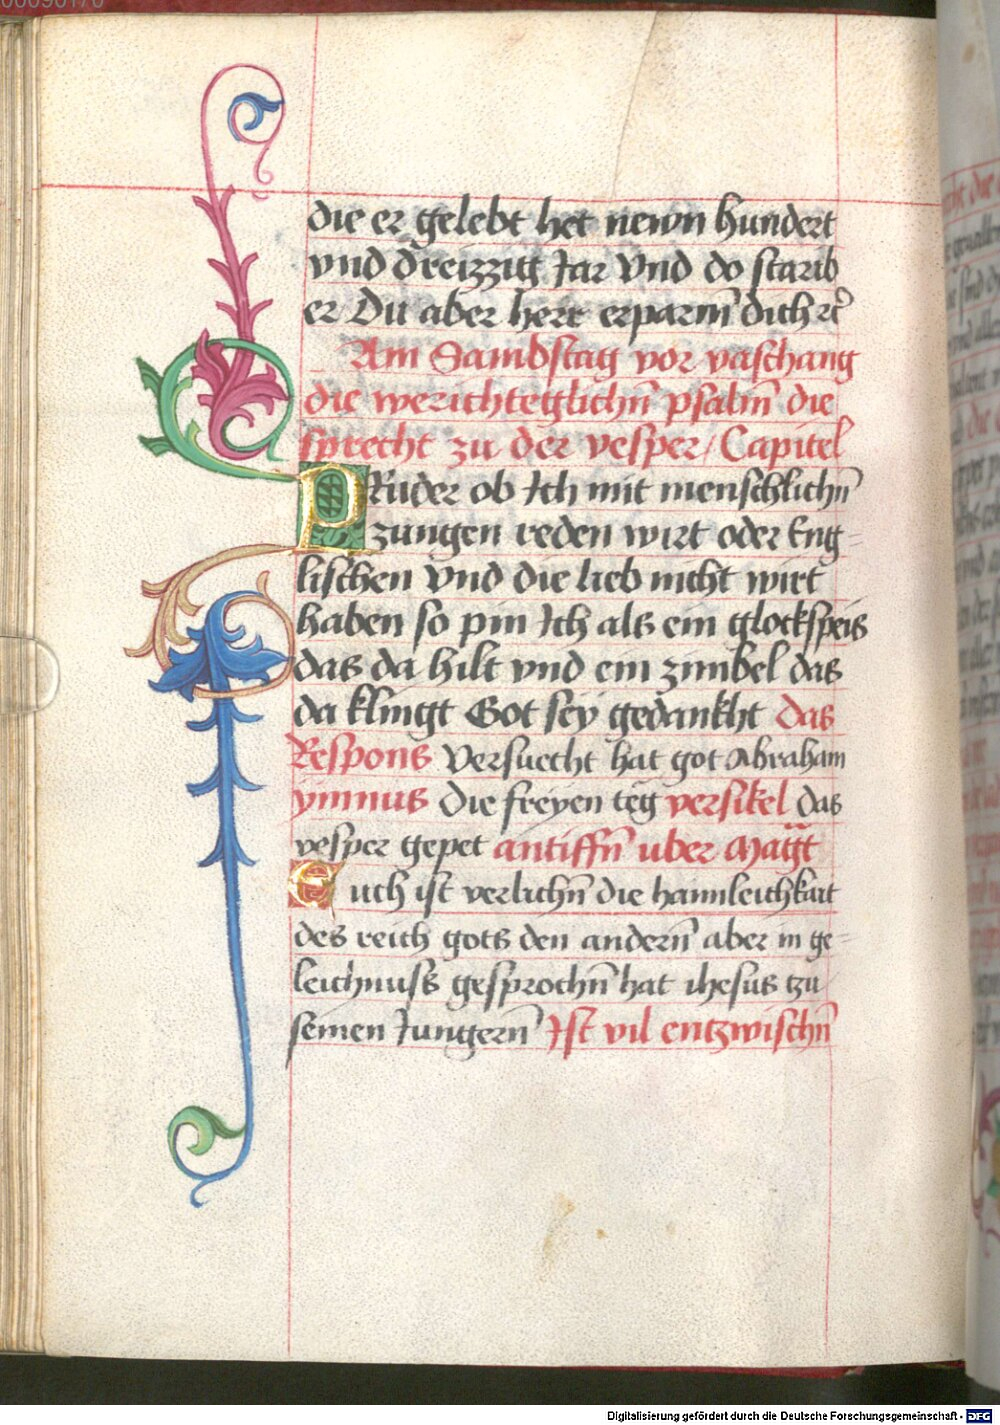 00090170
die er gelebt het newn hundert
vnd dreizzig Jar Vnd do starib
er Du aber herr erparm̄ dich ꝛc̄
Am Sambstag vor vaschang
die werichteglichn̄ psalm̄ die
sprecht zu der vesper / Capitel
PRuder ob Ich mit menschlichn̄
zungen reden wirt oder Eng-
lischen Vnd die lieb nicht wirt
haben so pin Ich als ein glockspeis
das da hilt vnd ein zimbel das
da klingt Got sey gedankht das
Respons Versuecht hat got Abraham
ymnus Die freyen teg versikel das
vesper gepet antiffn̄ uber Mag̅t
Euch ist verlichn̄ die haimleichkait
des reich gots den andern̄ aber in ge-
leichnuss gesprochn̄ hat ihesus tzu
seinen Jungern̄ Ist vil entzwischn̄
Digitalisierung gefördert durch die Deutsche Forschungsgemeinschaft - DFG